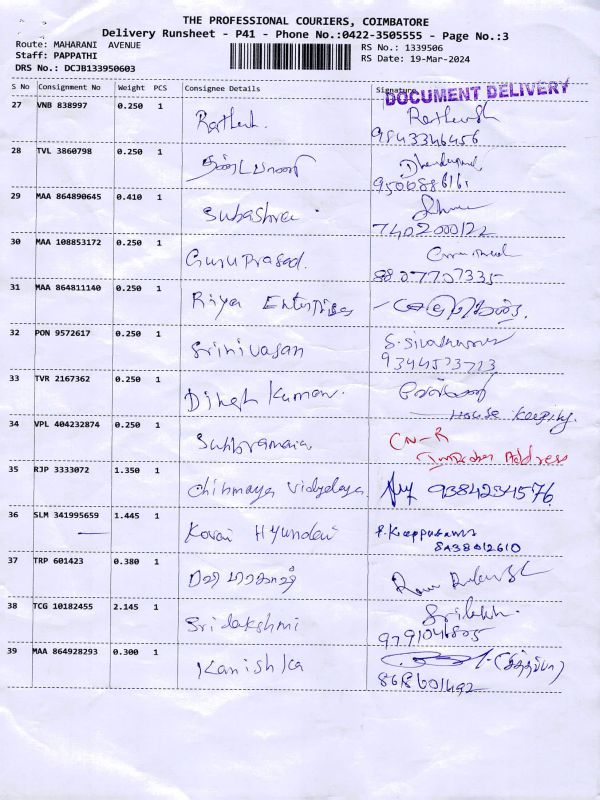 THE PROFESSIONAL COURIERS, COIMBATORE
Delivery Runsheet - P41 - Phone No.:0422-3505555 - Page No.:3
Route: MAHARANI AVENUE
Staff: PAPPATHI
DRS No.: DCJB133950603
RS No.: 1339506
RS Date: 19-Mar-2024
S No Consignment No Weight PCS Consignee Details Signature
DOCUMENT DELIVERY
27 VNB 838997 0.250 1
9843346456
28 TVL 3860798 0.250 1 தண்டபாணி
29 MAA 864890645 0.410 1 Subashree
7402000122
30 MAA 108853172 0.250 1 Guruprasad.
8807707335
31 MAA 864811140 0.250 1 Riya Enterprises
32 PON 9572617 0.250 1 Srinivasan
33 TVR 2167362 0.250 1 Dinesh Kumar.
House keeping.
34 VPL 404232874 0.250 1 Subbramania
CN-R
Address
35 RJP 3333072 1.350 1 Chinmaya Vidyalaya 9384234576
36 SLM 341995659 1.445 1 Kovai Hyundai
37 TRP 601423 0.380 1
38 TCG 10182455 2.145 1 Sridakshmi
39 MAA 864928293 0.300 1 Kanishka